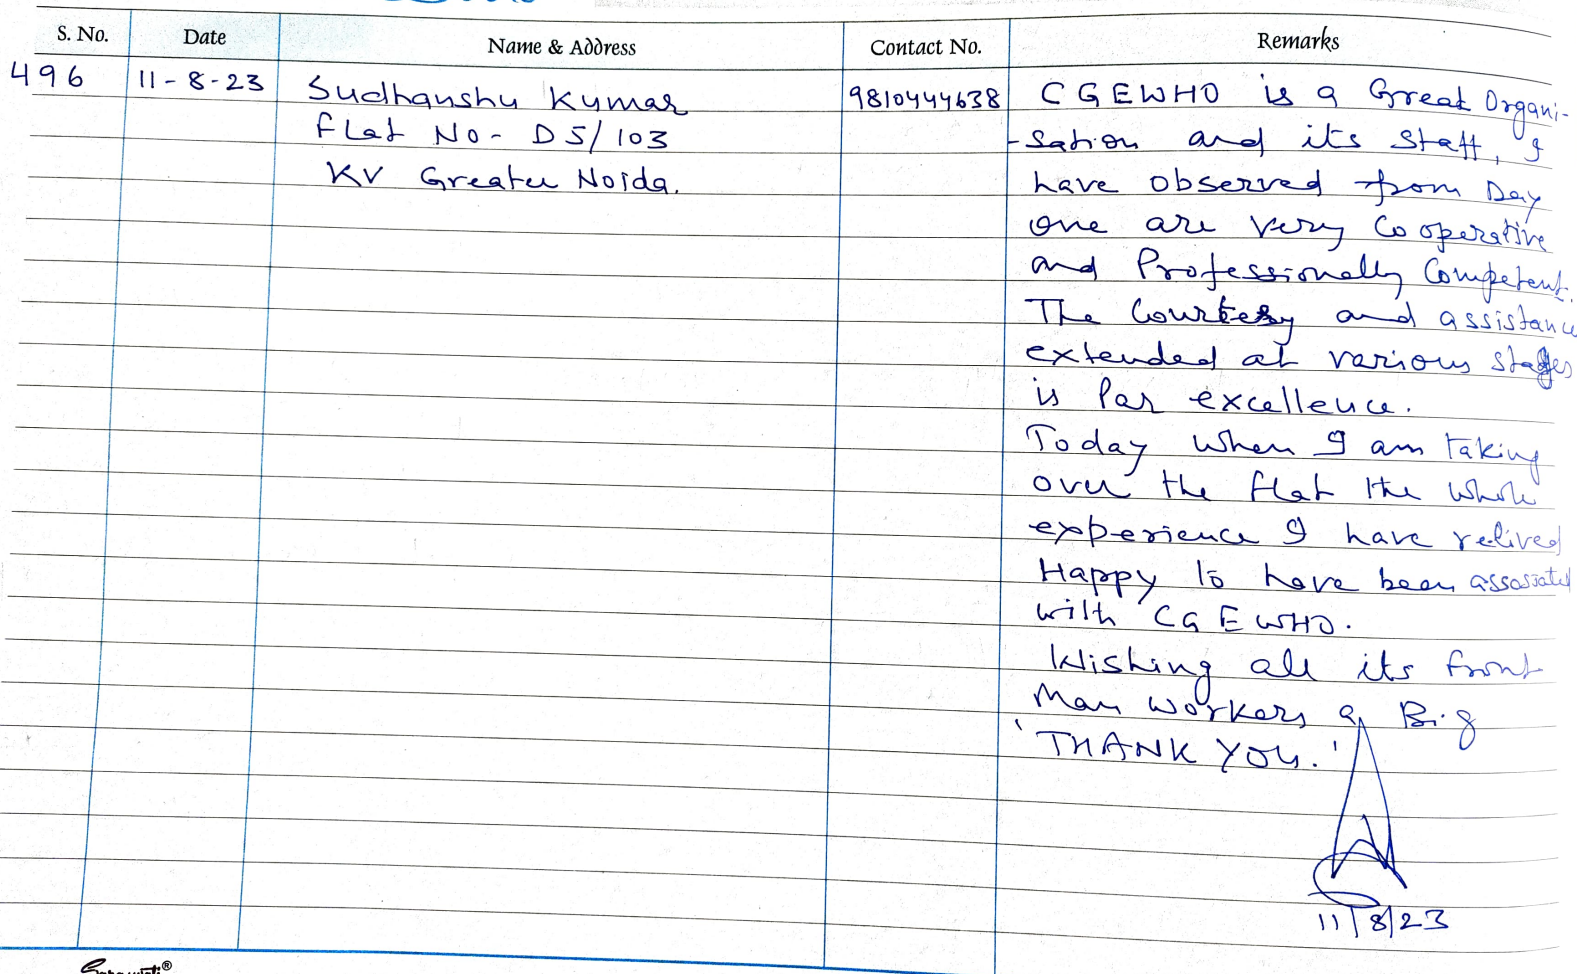 S. No. Date Name & Address Contact No. Remarks
496 11-8-23 Sudhanshu Kumar 9810444638 CGEWHO is a Great Organi-
Flat No- D5/103 -sation and its staff, I
KV Greater Noida. have observed from Day
one are very Cooperative
and Professionally Competent.
The Courtesy and assistance
extended at various stages
is Par excellence.
Today when I am taking
over the flat the whole
experience I have relived
Happy to have been assosiated
with CGEWHO.
Wishing all its front
Man workers a Big
'THANK YOU.'
11/8/23